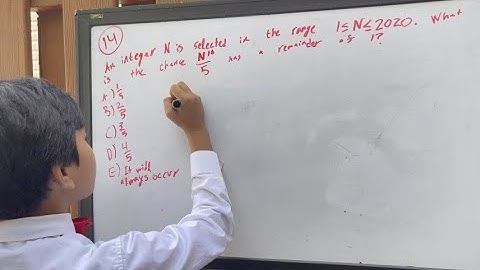 14
An integer N is selected in the range 1≤N≤2020. What
is the chance N^16/5 has a remainder of 1?
A) 1/5
B) 2/5
C) 3/5
D) 4/5
E) It will
always occur